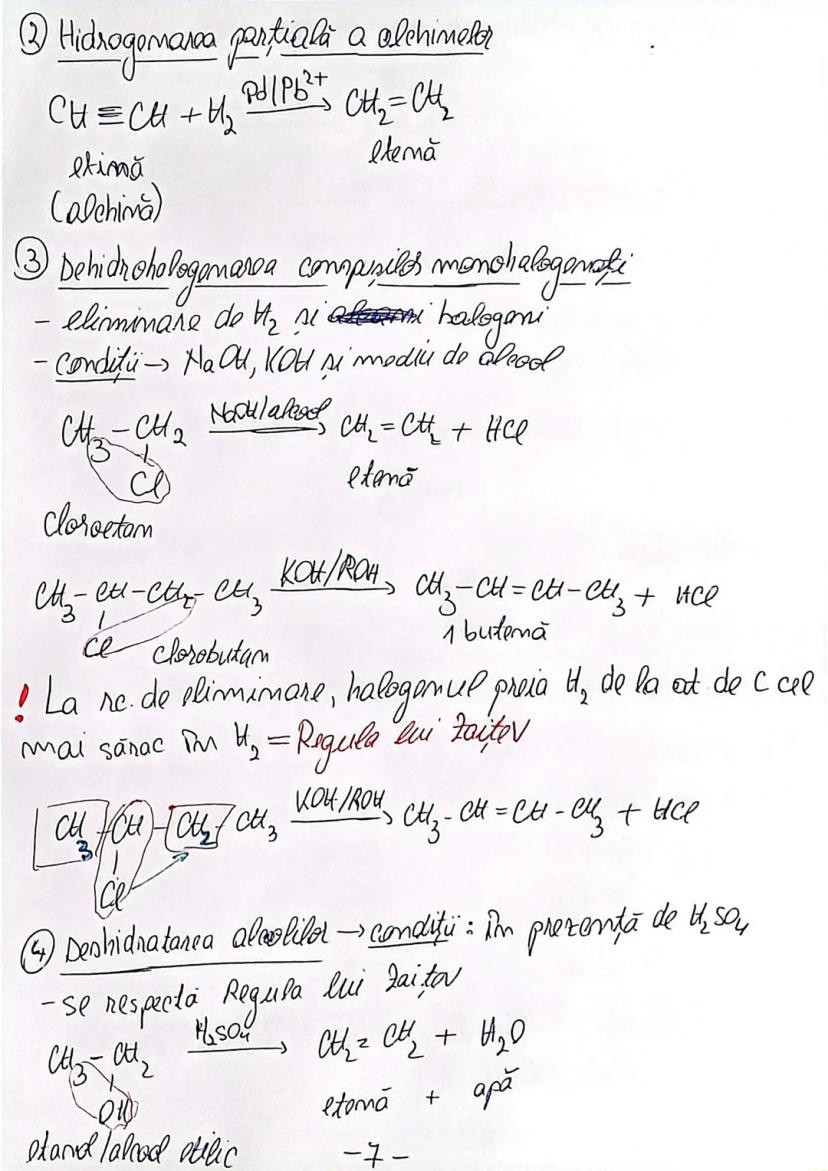 ② Hidrogenarea parțială a alchinelor
CH ≡ CH + H₂ →(Pd/Pb²⁺) CH₂=CH₂
etină etenă
(alchină)
③ Dehidrohalogenarea compușilor monohalogenați
- eliminare de H₂ și halogeni
- condiții → NaOH, KOH și mediu de alcool
CH₃ - CH₂ →(NaOH/alcool) CH₂ = CH₂ + HCl
Cl etenă
cloroetan
CH₃ - CH - CH₂ - CH₃ →(KOH/ROH) CH₃-CH=CH-CH₃ + HCl
Cl clorobutan 1 butenă
! La rc. de eliminare, halogenul preia H₂ de la at. de C cel
mai sărac în H₂ = Regula lui Zaițev
CH₃ - CH - CH₂ - CH₃ →(KOH/ROH) CH₃ - CH = CH - CH₃ + HCl
Cl
④ Deshidratarea alcolilor → condiții: în prezență de H₂SO₄
- se respectă Regula lui Zaițev
CH₃ - CH₂ →(H₂SO₄) CH₂ = CH₂ + H₂O
OH etenă + apă
etanol/alcool etilic
- 7 -